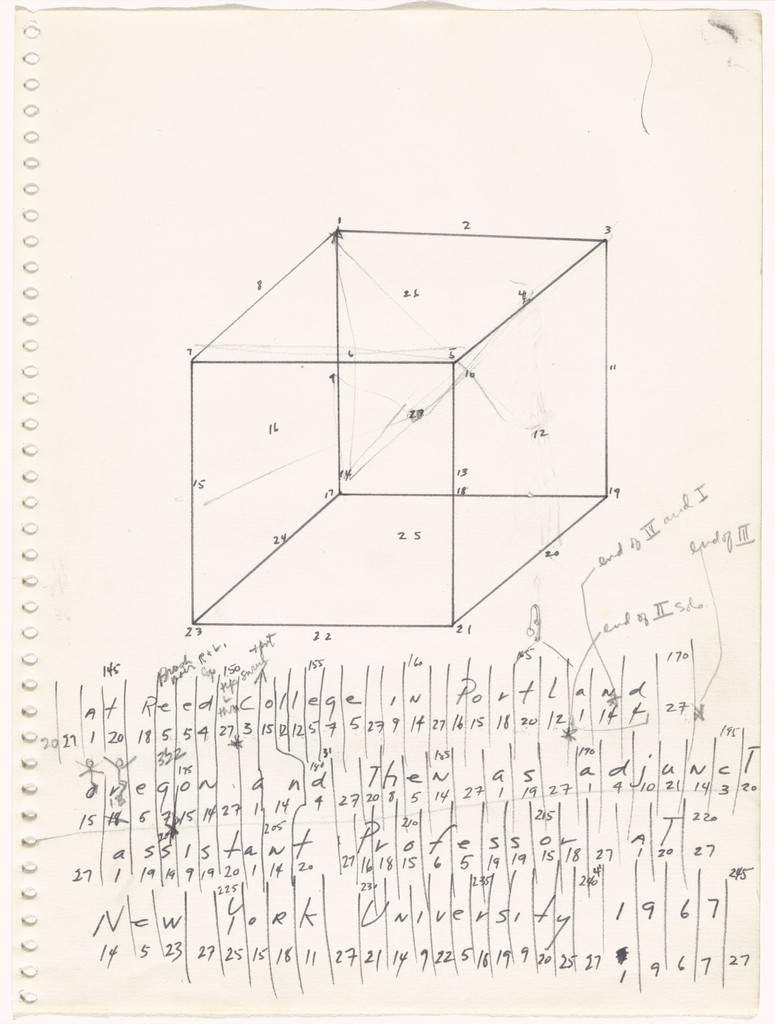 1 2 3
8 26 4
7 6 5
9 10 11
16 12
15 14 13
17 18 19
24 25 20
23 22 21
end of IV and I
end of III
end of II solo
145 150 155 160 165 170
At Reed College in Portland
20 27 1 20 18 5 5 4 27 3 15 12 12 5 7 5 27 9 14 27 16 15 18 20 12 1 14 4 27
175 185 190 195
Oregon and Then as adjuncT
15 18 5 7 15 14 27 1 14 4 27 20 8 5 14 27 1 19 27 1 4 10 21 14 3 20
205 210 215 220
assistant Professor AT
27 1 19 19 9 19 20 1 14 20 27 16 18 15 6 5 19 19 15 18 27 1 20 27
225 235 240 245
New York University 1967
14 5 23 27 25 15 18 11 27 21 14 9 22 5 18 19 9 20 25 27 1 9 6 7 27